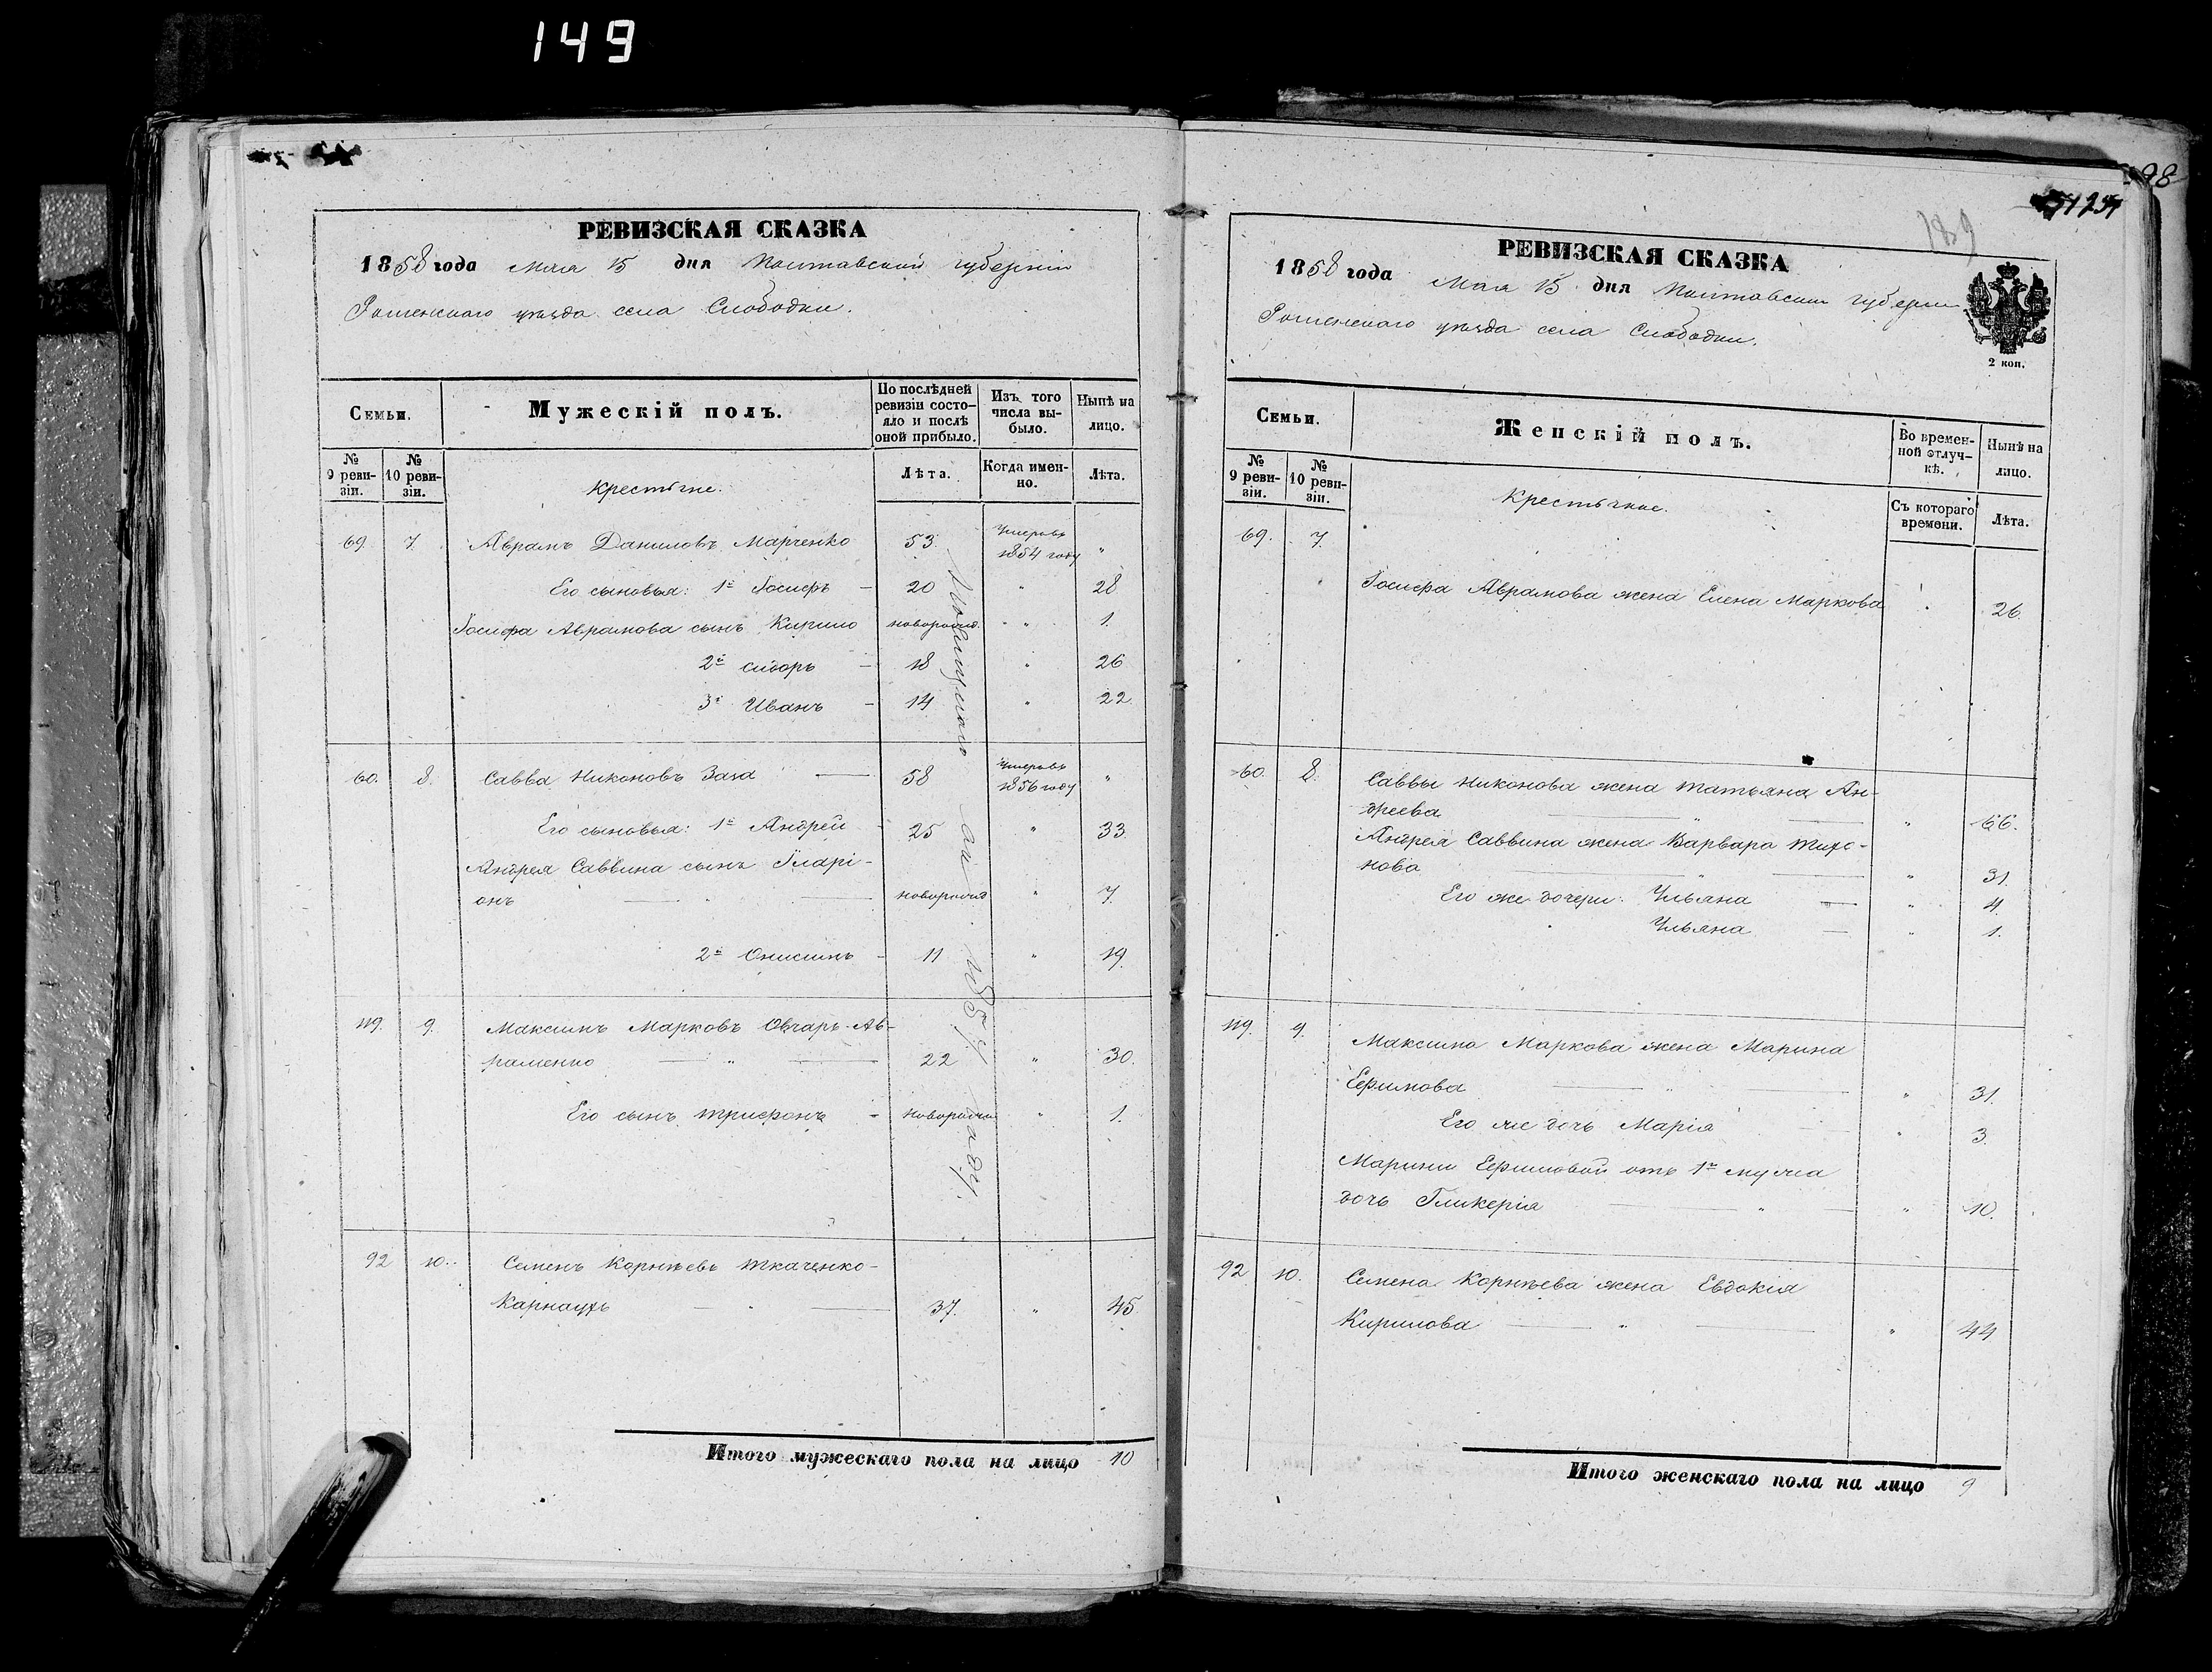 149
РЕВИЗСКАЯ СКАЗКА
1858 года Мая 15 дня Полтавской губерніи
Роменскаго уѣзда села Слободки.
Семьи.
Мужескій полъ.
По послѣдней ревизіи состо-
яло и послѣ оной прибыло.
Изъ того числа вы-
было.
Нынѣ на лицо.
№ 9 реви-
зіи.
№ 10 реви-
зіи.
Крестьяне.
Лѣта.
Когда имен-
но.
Лѣта.
69. 7. Аврамъ Даниловъ Марченко 53. Умеръ въ 1854 году "
Его сыновья: 1й Іосифъ - 20 " 28
Іосифа Аврамова сынъ Кирило новорожд. " 1.
2й Сидоръ - 18 " 26
3й Иванъ - 14 " 22.
60. 8. Савва Никоновъ Заза — 58 Умеръ въ 1856 году "
Его сыновья: 1й Андрей - 25 " 33
Андрея Саввина сынъ Іларі-
онъ — " — новорожд " 7.
2й Онисимъ - 11 " 19.
119. 9. Максимъ Марковъ Овчаръ-Ав-
раменко — " — 22 " 30.
Его сынъ Трифонъ - новорожд " 1.
92 10. Семенъ Корнѣевъ Ткаченко-
Карнаухъ — " — 37. " 45
1857 году.
Итого мужескаго пола на лицо 10
98
189
РЕВИЗСКАЯ СКАЗКА
1858 года Мая 15 дня Полтавской губерніи
Роменскаго уѣзда села Слободки.
2 коп.
Семьи.
Женскій полъ.
Во времен-
ной отлуч-
кѣ.
Нынѣ на лицо.
№ 9 реви-
зіи.
№ 10 реви-
зіи.
Крестьяне.
Съ котораго времени.
Лѣта.
69. 7.
Іосифа Аврамова жена Елена Маркова " 26.
60. 8. Саввы Никонова жена Татьяна Ан-
дреева — " — " 66.
Андрея Саввина жена Варвара Тихо-
нова — " — " 31.
Его же дочери: Ульяна — " 4.
Ульяна — " 1.
119. 9. Максима Маркова жена Марина
Ефимова — " — " 31.
Его же дочь Марія — " 3.
Марини Ефимовой отъ 1го мужа
дочь Гликерія — " — " 10.
92 10. Семена Корнѣева жена Евдокія
Кирилова — " — " 44
Итого женскаго пола на лицо 9